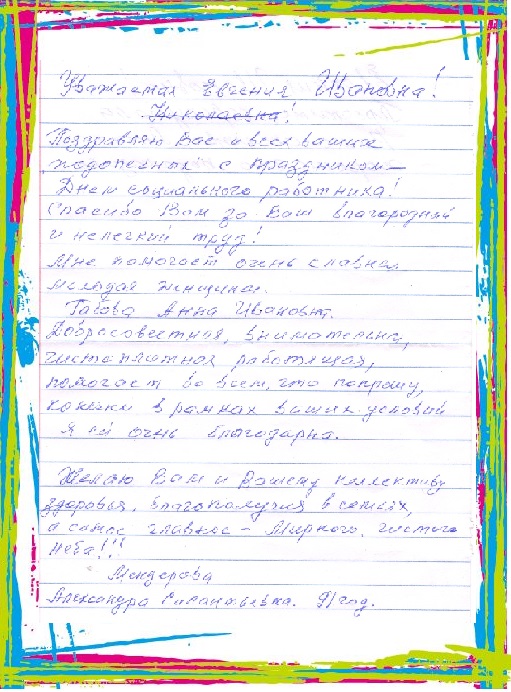 Уважаемая Евгения Ивановна!
Николаевна!
Поздравляю Вас и всех ваших
подопечных с праздником –
Днем социального работника!
Спасибо Вам за Ваш благородный
и нелегкий труд!
Мне помогает очень славная
молодая женщина.
Анна Ивановна.
Добросовестная, внимательная,
чистоплотная работящая,
помогает во всем, что попрошу,
в рамках ваших условий
Я ей очень благодарна.
Желаю Вам и Вашему коллективу
здоровья, благополучия в семьях,
а самое главное – Мирного, чистого
неба!!!
Александра 91 год.